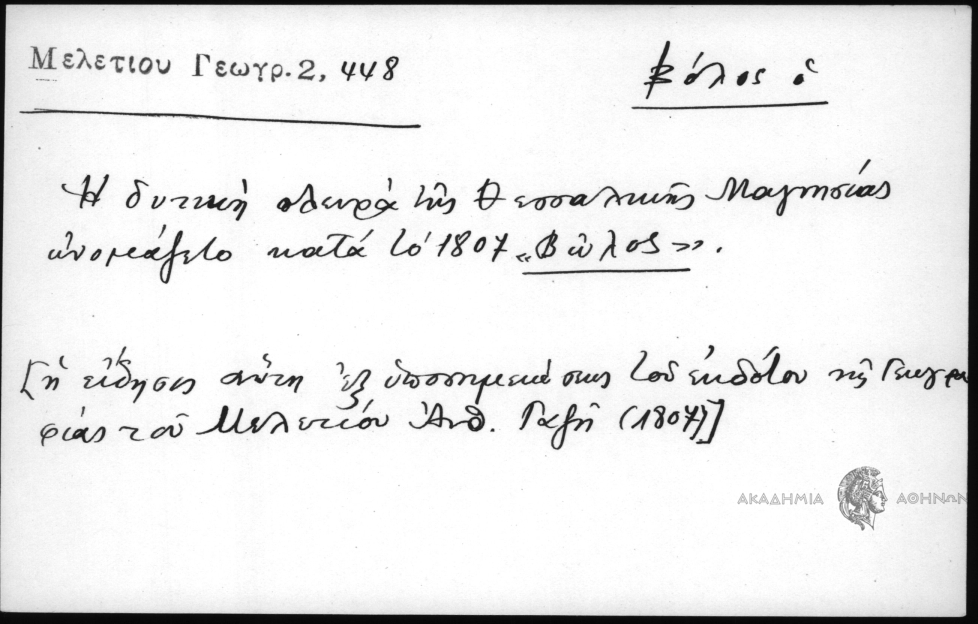 Μελετιου Γεωγρ. 2, 448
Βόλος ὁ
Ἡ δυτικὴ πλευρὰ τῆς Θεσσαλικῆς Μαγνησίας
ὠνομάζετο κατὰ τὸ 1807 «Βῶλος».
[ἡ εἴδησις αὕτη ἐξ ὑποσημειώσεως τοῦ ἐκδότου τῆς Γεωγρα
φίας τοῦ Μελετίου Ἀνθ. Γαζῆ (1807)]
ΑΚΑΔΗΜΙΑ ΑΘΗΝΩΝ